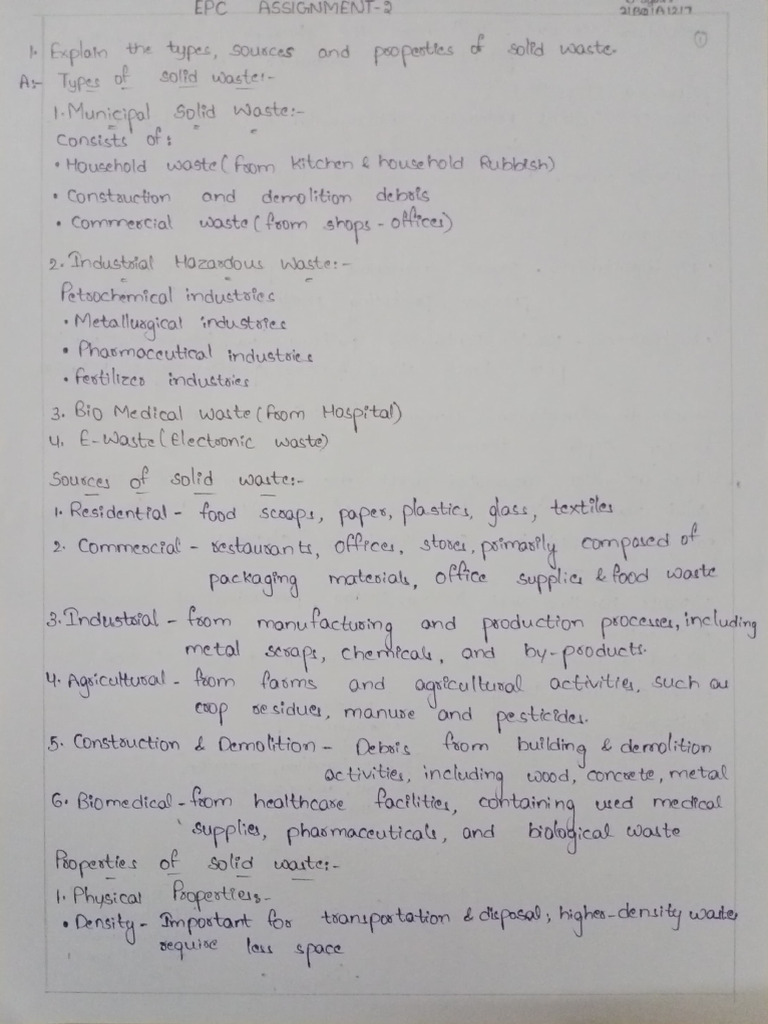 EPC ASSIGNMENT-2
①
1. Explain the types, sources and properties of solid waste.
A:- Types of solid waste:-
1. Municipal Solid Waste:-
Consists of:
• Household waste (from kitchen & household Rubbish)
• Construction and demolition debris
• Commercial waste (from shops - offices)
2. Industrial Hazardous Waste:-
Petrochemical industries
• Metallurgical industries
• Pharmaceutical industries
• Fertilizer industries
3. Bio Medical Waste (from Hospital)
4. E-Waste (Electronic waste)
Sources of solid waste:-
1. Residential - food scraps, paper, plastics, glass, textiles
2. Commercial - restaurants, offices, stores, primarily composed of
packaging materials, office supplies & food waste
3. Industrial - from manufacturing and production processes, including
metal scraps, chemicals, and by-products.
4. Agricultural - from farms and agricultural activities, such as
crop residues, manure and pesticides.
5. Construction & Demolition - Debris from building & demolition
activities, including wood, concrete, metal
6. Biomedical - from healthcare facilities, containing used medical
supplies, pharmaceuticals, and biological waste
Properties of solid waste:-
1. Physical Properties:-
• Density - Important for transportation & disposal; higher-density waste
require less space